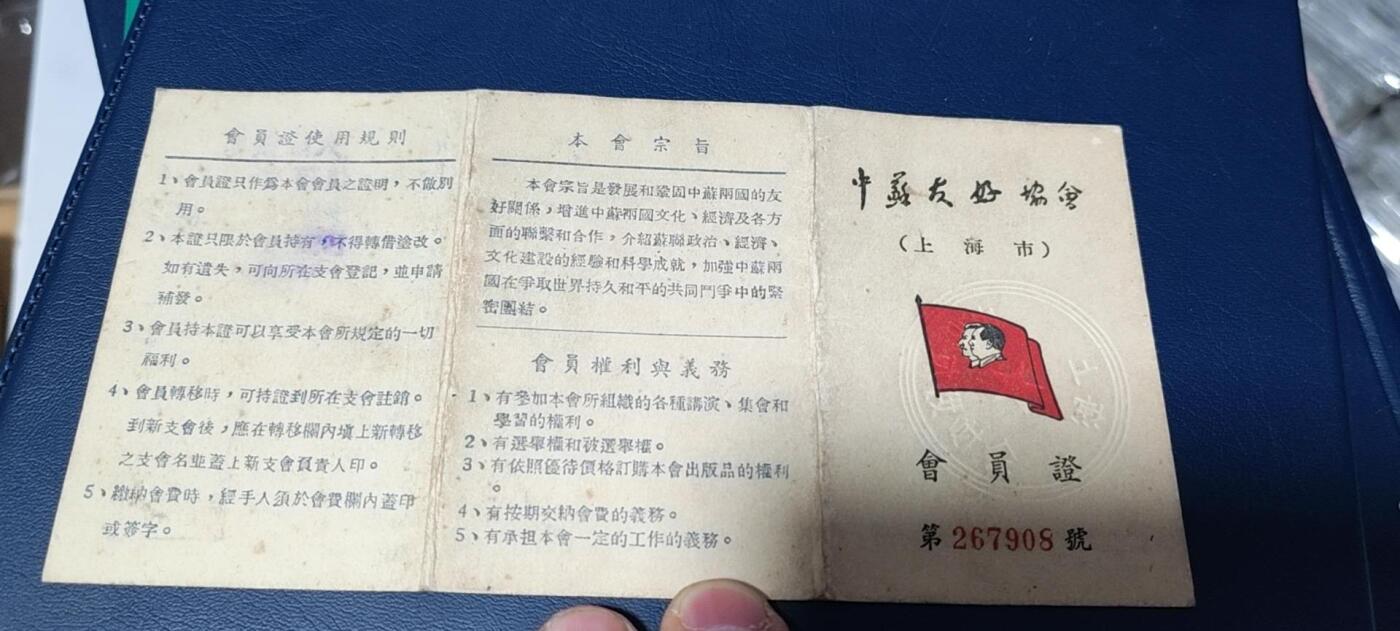 會員證使用規則
1、會員證只作爲本會會員之證明，不做別
用。
2、本證只限於會員持有，不得轉借塗改。
如有遺失，可向所在支會登記，並申請
補發。
3、會員持本證可以享受本會所規定的一切
福利。
4、會員轉移時，可持證到所在支會註銷。
到新支會後，應在轉移欄內填上新轉移
之支會名並蓋上新支會負責人印。
5、繳納會費時，經手人須於會費欄內蓋印
或簽字。
本會宗旨
本會宗旨是發展和鞏固中蘇兩國的友
好關係，增進中蘇兩國文化、經濟及各方
面的聯繫和合作，介紹蘇聯政治、經濟、
文化建設的經驗和科學成就，加強中蘇兩
國在爭取世界持久和平的共同鬥爭中的緊
密團結。
會員權利與義務
1、有參加本會所組織的各種講演、集會和
學習的權利。
2、有選舉權和被選舉權。
3、有依照優待價格訂購本會出版品的權利
。
4、有按期交納會費的義務。
5、有承担本會一定的工作的義務。
中蘇友好協會
（上海市）
會員證
第267908號